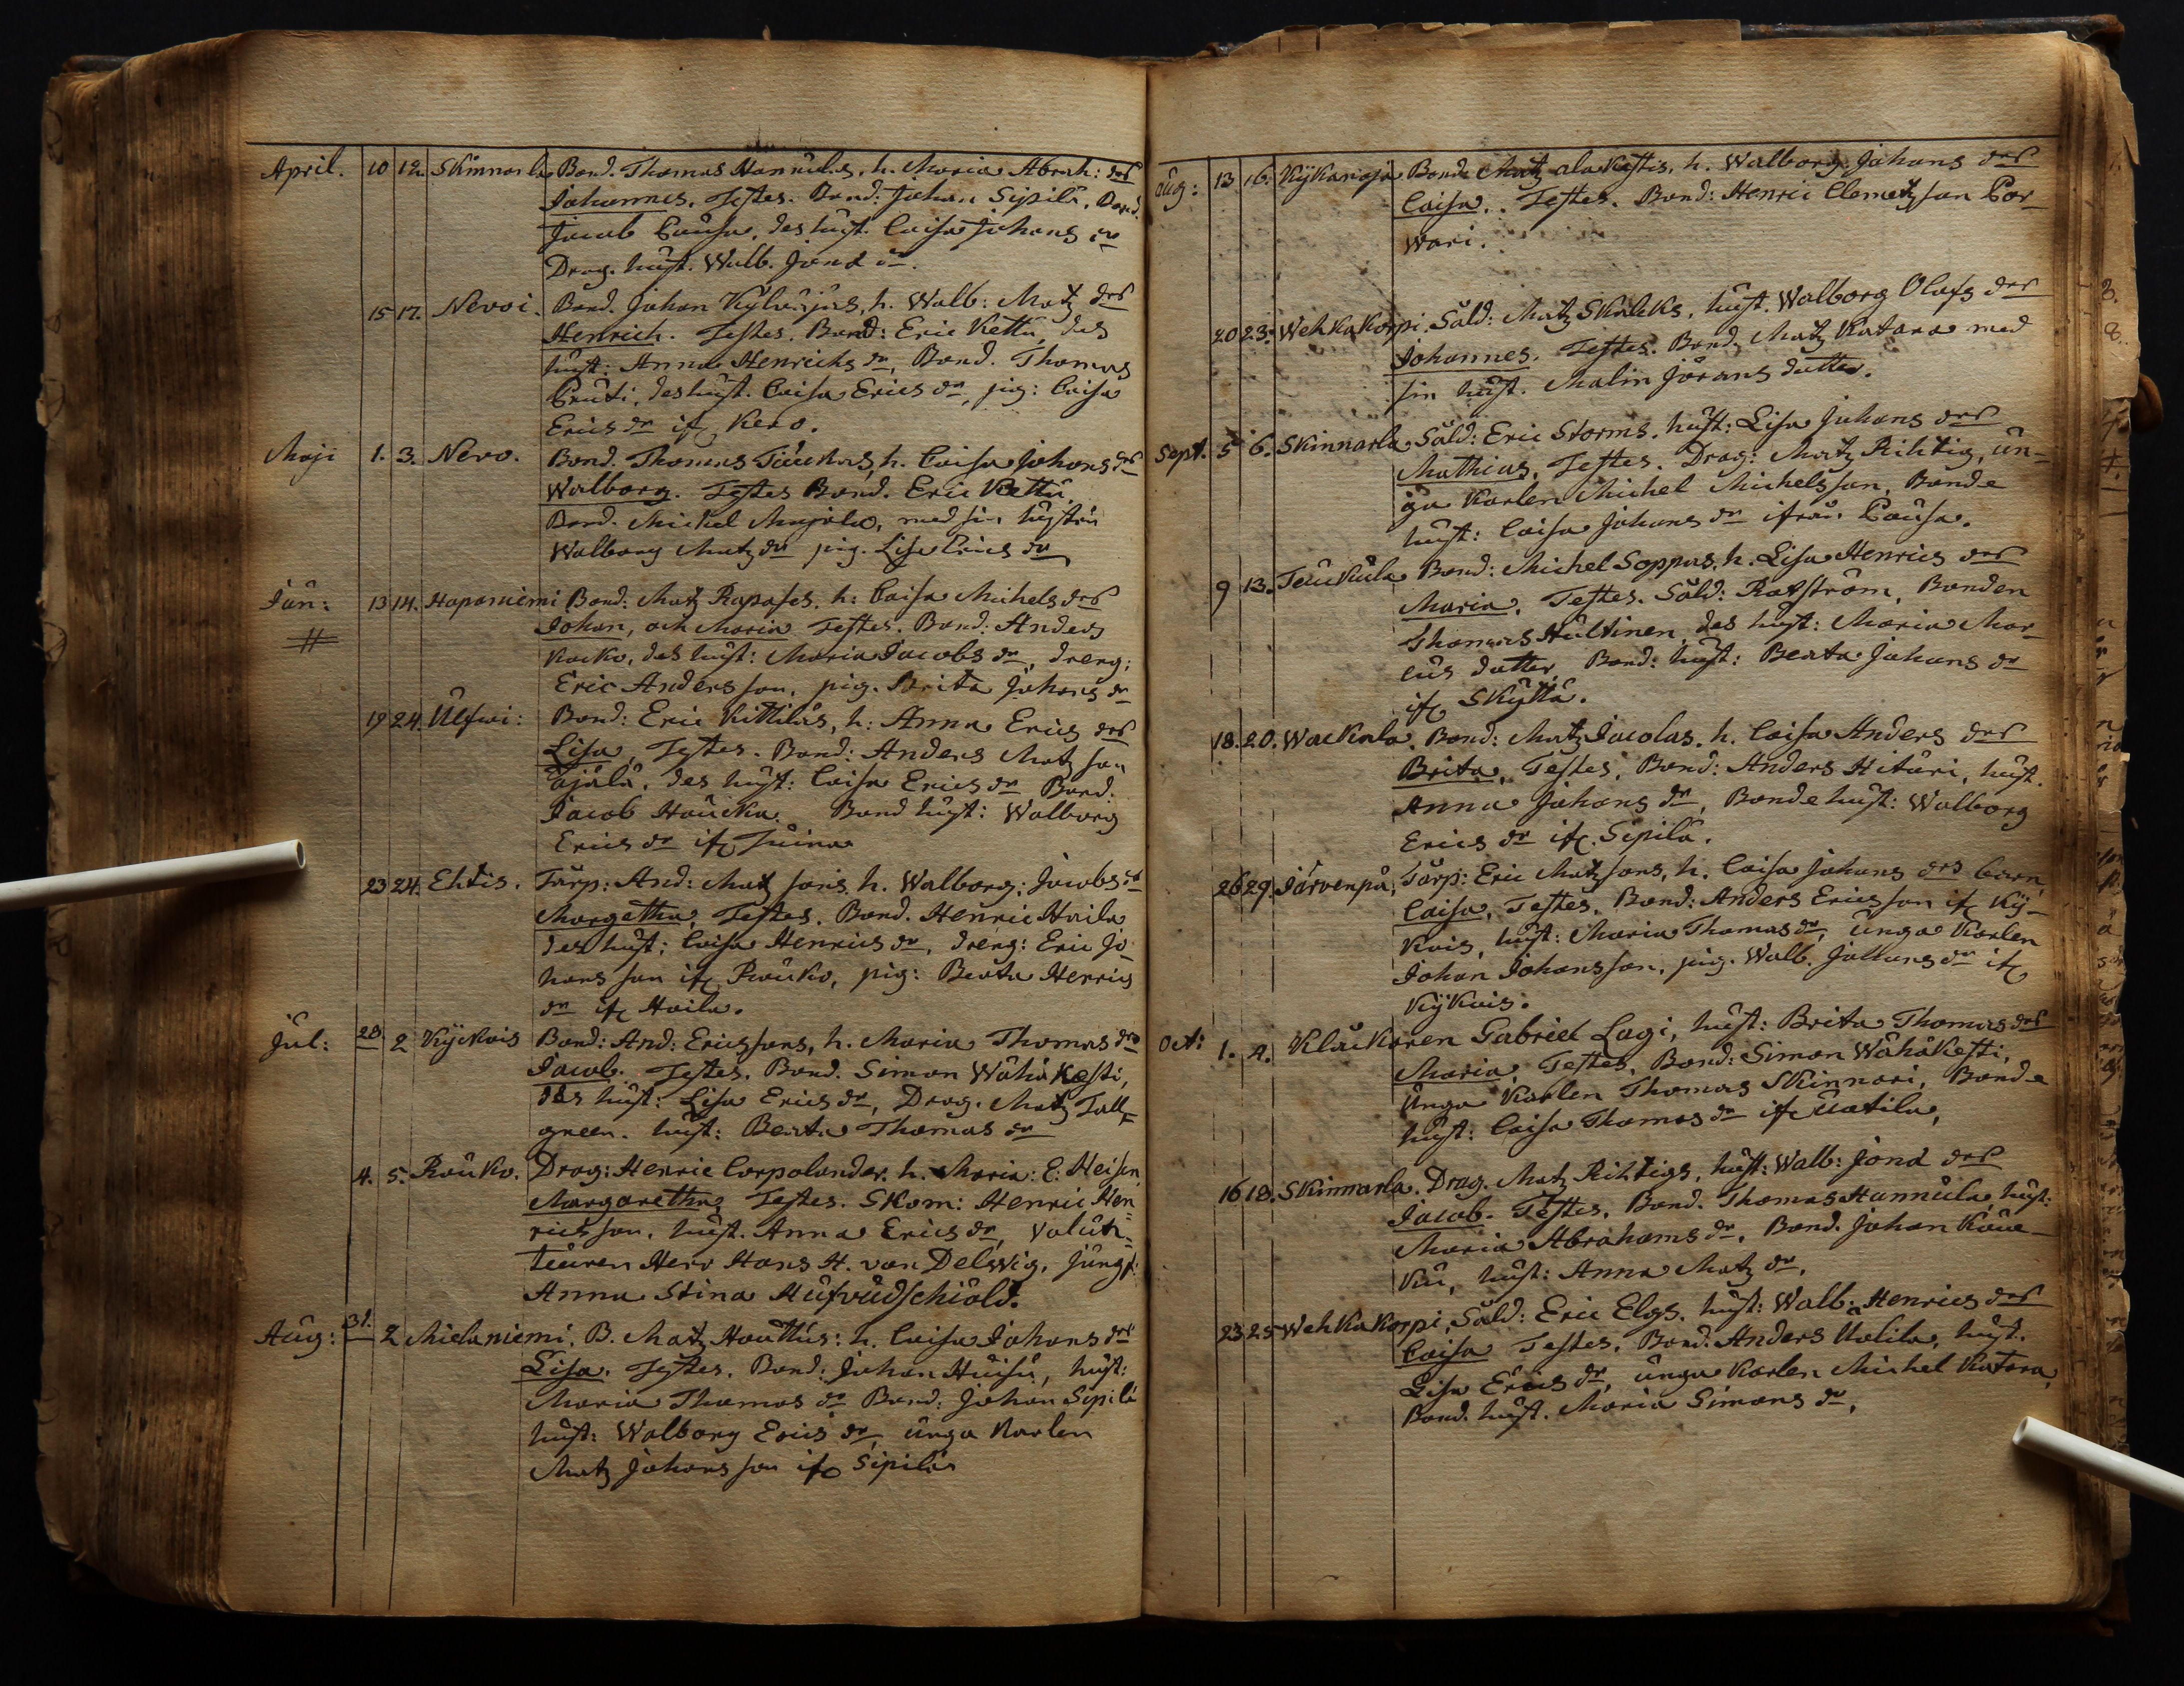 April. 10 12. Skinnarla Bond. Thomas Hannulas, h. Maria Abrah: drs
Johannes. Testes. Bond: Johan Sipilä, Bond.
Jacob Causa, des hust. Caisa Johans dr
Drag. hust. Walb. Jona dr.
15 17. Nevoi. Bond. Johan Kylänjäs, h. Walb: Matz drs
Henrich. Testes. Bond: Eric Kettu, des
hust: Anna Henrichs dr, Bond. Thomas
Cruti, des hust. Caisa Erics dr, pig: Caisa
Erics dr if. Kero.
Maji 1. 3. Nevo. Bond. Thomas h. Caisa Johans drs
Walborg. Testes Bond. Eric Kettu,
Bond. Michel Anjala, med sin hustru
Walborg Matz dr pig. Lisa Erics dr
Jun: 13 14. Haparniemi Bond: Matz Rapases. h: Caisa Michels drs
Johan, och Maria Testes. Bond: Anders
Kocko, des hust: Maria Jacobs dr, dreng:
Eric Anders son, pig. Brita Johans dr
19 24. Ulfwi: Bond: Eric Kittiläs, h: Anna Erics drs
Lisa, Testes. Bond: Anders Matz son
Äijälä, des hust: Caisa Erics dr Bond.
Jacob Haucka. Bond hust: Walborg
Erics dr if
23 24. Ehtis. Tårp: And: Matz sons h. Walborg: Jacobs dr
Margetha, Testes. Bond. Henric Haila
des hust: Caisa Henrics dr, dreng: Eric Jo
hans son if. Rauko, pig: Beata Henrics
dr if Haila.
Jul: 28 2 Kyckois Bond: And: Ericssons, h. Maria Thomas drs
Jacob. Testes. Bond. Simon Wähäkesti,
des hust: Lisa Erics dr, Drag. Matz Tall=
green. hust: Beata Thomas dr
4. 5. Rauko. Drag: Henric Corpolander. h. Maria: E: Heisen,
Margaretha, Testes. Skom: Henric Hen=
ricsson, hust. Anna Erics dr, Volun=
teuren Herr Hans H. von Delwig, Jungf:
Anna Stina Hufvudschiöld.
Aug: 31. 2 Mielaniemi. B. Matz Houttus: h. Caisa Johans drs
Lisa. Testes. Bond: Johan Huisu, hust:
Maria Thomas dr Bond: Johan Sipilä
hust: Walborg Erics dr, unga Karlen
Matz Johans son if Sipilä
Aug: 13 16. Kykänoja Bonde Matz alakestis, h. Walborg Johans drs
Caisa. Testes. Bond: Henric Clemetz son Cor
wari.
20 23. Wehkakorpi. Såld: Matz Skalks, hust. Walborg Olofs drs
Johannes. Testes. Bond. Matz Katara med
sin hust. Malin Jörans dotter.
Sept. 5 6. Skinnarla Såld: Eric Storms. hust: Lisa Johans drs
Mathias, Testes. Drag: Matz Richtig, un=
ga Karlen Michel Michelsson, Bonde
hust: Caisa Johans dr ifrån Causa.
9 13. Teukula Bond: Michel Soppas, h. Lisa Henrics drs
Maria. Testes. Såld: Ratström, Bonden
Thomas Hultinen, des hust: Maria Mar
cus dotter, Bond: hust: Beata Johans dr
if Skyttä.
18. 20. Wackala. Bond: Matz Jacolas. h. Caisa Anders drs
Brita, Testes, Bond: Anders Hituri, hust.
Anna Johans dr, Bonde hust: Walborg
Erics dr if. Sipilä.
26 29. Järvenpä, Tårp: Eric Matz sons, h. Caisa Johans drs barn,
Caisa, Testes, Bond: Anders Ericsson if Ky
kois, hust: Maria Thomas dr, unga Karlen
Johan Johansson, pig. Walb. Johans dr if
Kykois.
Oct: 1. 4. Klåckaren Gabriel Lagi, hust: Brita Thomas drs
Maria, Testes, Bond: Simon Wähäkesti,
Unga Karlen Thomas Skinnari, Bonde
hust: Caisa Thomas dr if Uotila,
16 18. Skinnarla. Drag. Matz Richtigs, hust: Walb: Jona drs
Jacob. Testes, Bond. Thomas Hannula, hust:
Maria Abrahams dr. Bond. Johan Kauc
ku, hust: Anna Matz dr.
23 25 Wehkakorpi, Såld: Eric Elgs. hust: Walb: Henrics drs
Caisa Testes. Bond. Anders Uolila, hust.
Lisa Erics dr, unga Karlen Michel Katara,
Bond. hust. Maria Simons dr.